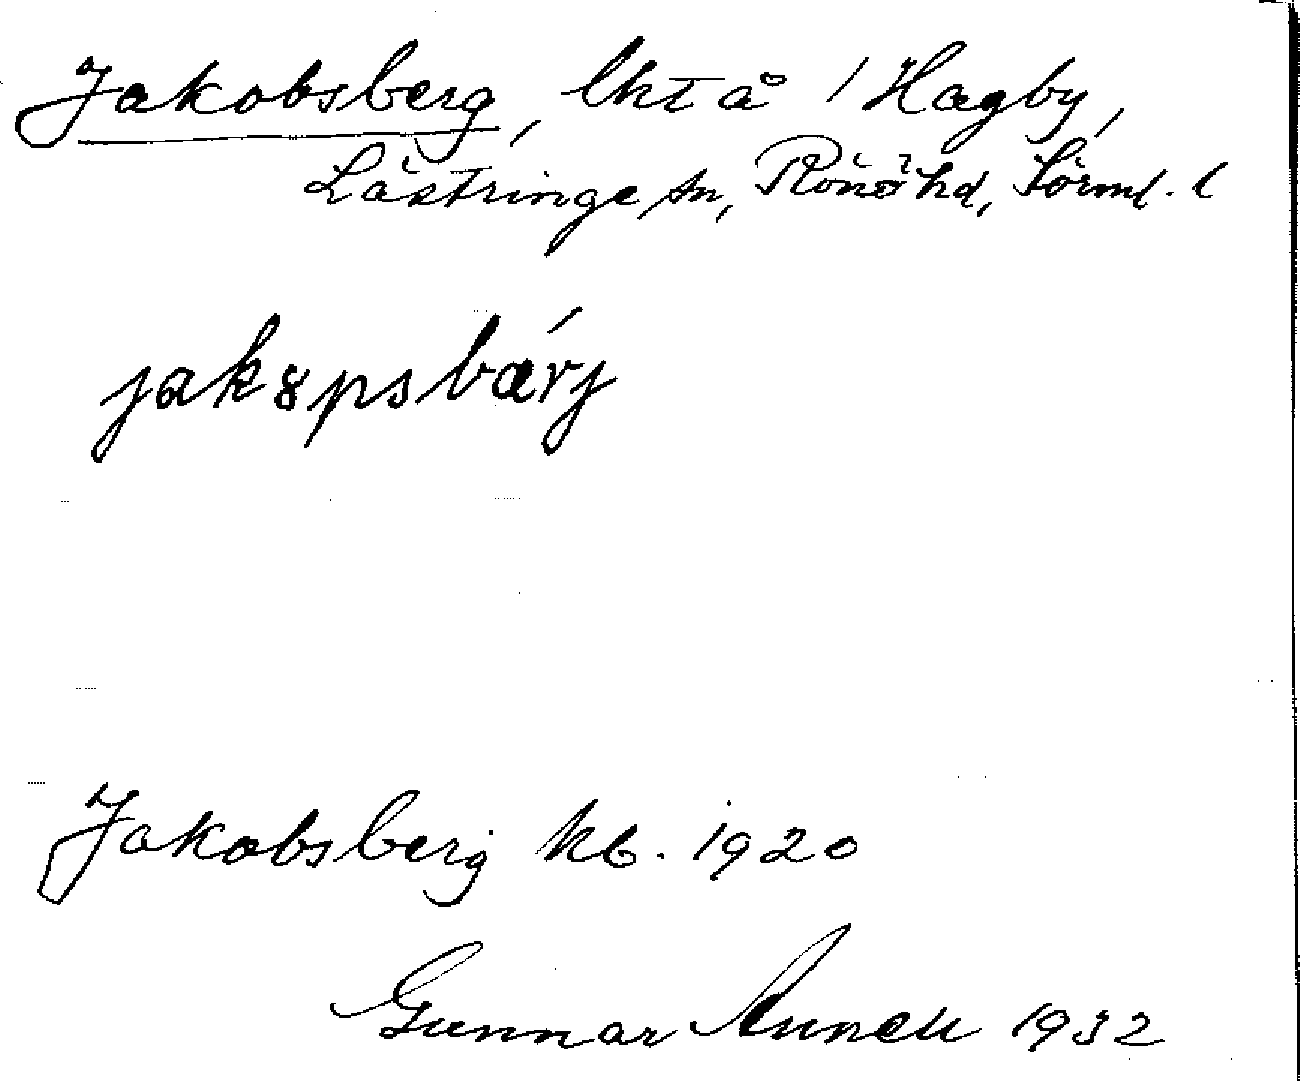 Jakobsberg, lht å / Hagby,
Lästringe sn, Rönö hd, Sörml. l
jakȣpsbærj
Jakobsberg kb. 1920
Gunnar 1932